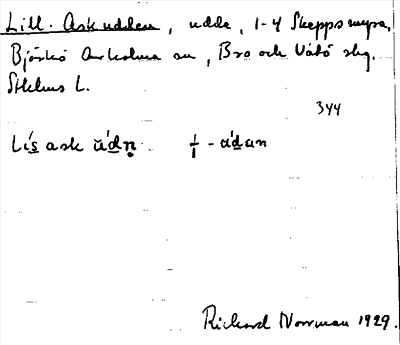 Lill. Askudden, udde, 1-4 Skeppsmyra,
Björkö Arholma sn, Bro och Vätö skg.
Sthlms L.
344
Lís ask údn ⊥ - údan
Rickard Norrman 1929.